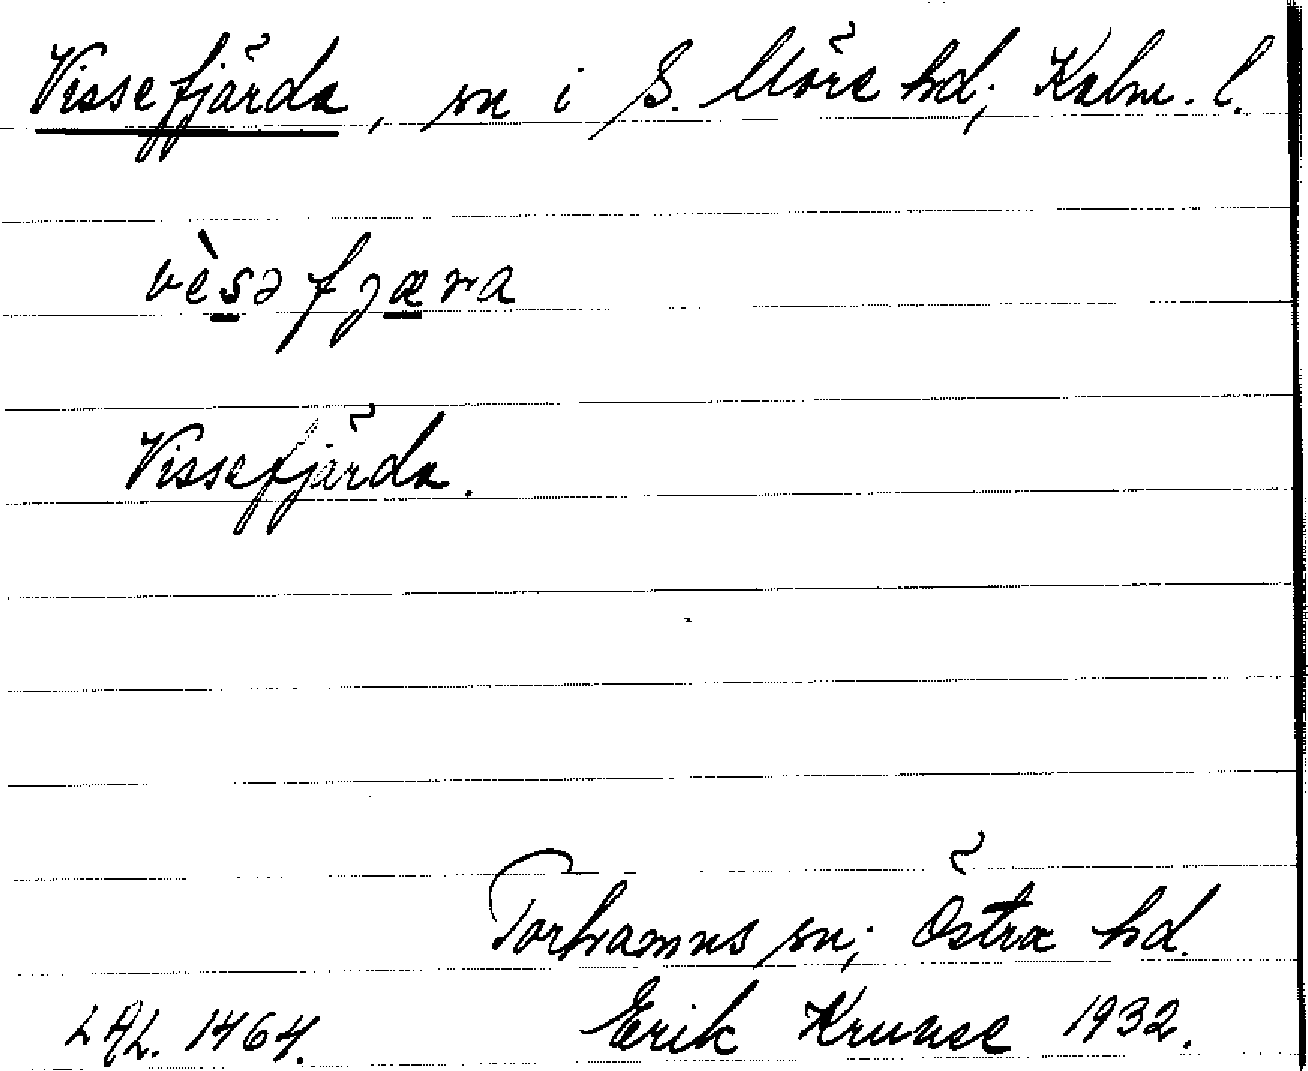 Vissefjärda, sn i S. Möre hd; Kalm. l.
vèsəfjæra
Vissefjärda.
Torhamns sn; Östra hd.
LAL. 1464. Erik Kruuse 1932.